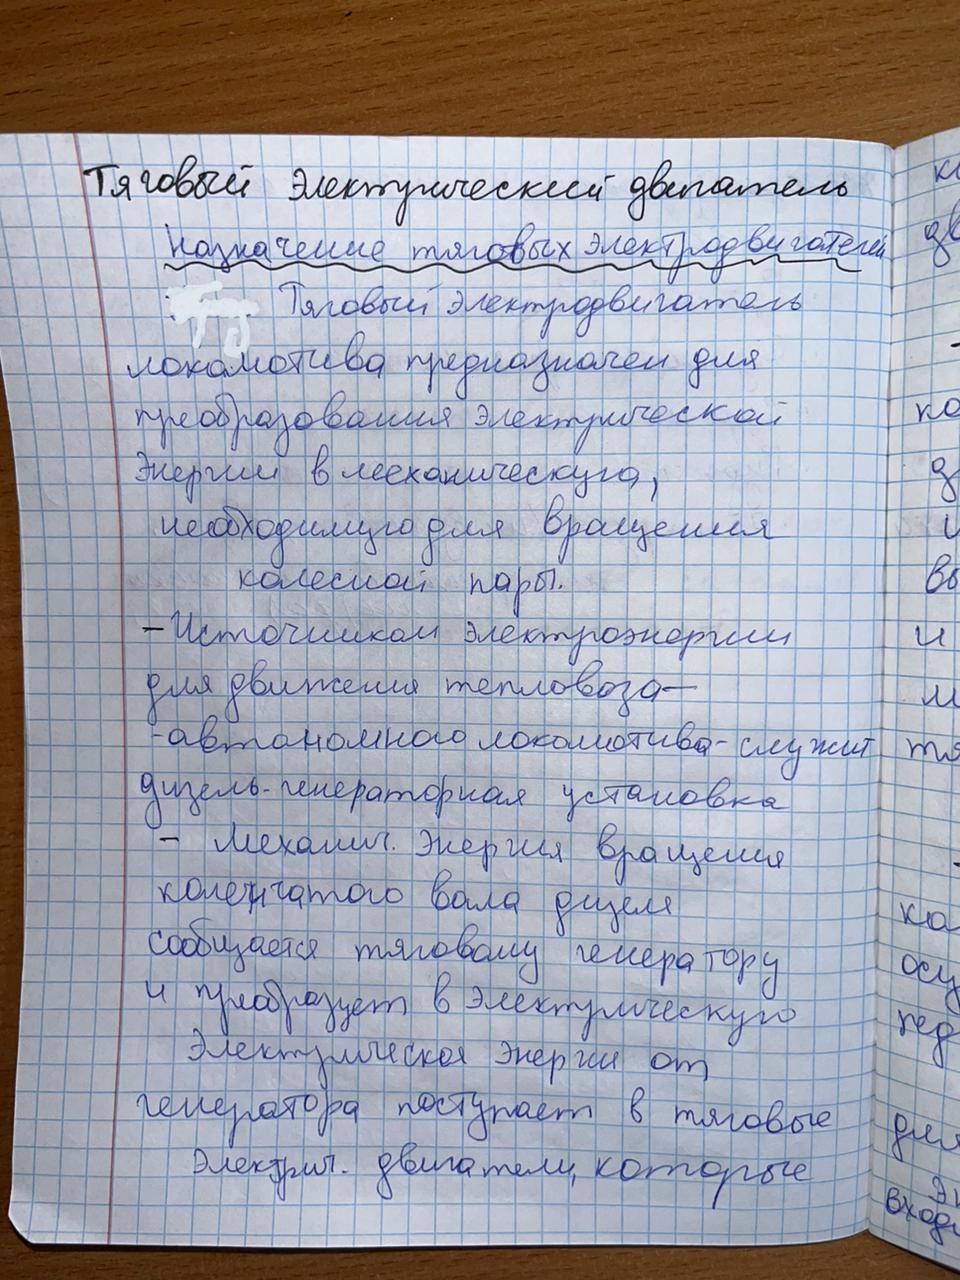 Тяговый электрический двигатель
Назначение тяговых электродвигателей
Тяговый электродвигатель
локомотива предназначен для
преобразования электрической
энергии в механическую,
необходимую для вращения
колесной пары.
– Источником электроэнергии
для движения тепловоза –
- автономного локомотива - служит
дизель-генераторная установка
- Механич. энергия вращения
коленчатого вала дизеля
сообщается тяговому генератору
и преобразует в электрическую
Электрическая энергии от
генератора поступает в тяговые
электрич. двигатели, которые
ко
дв
-
ко
д
и
вы
и
м
тя
-
ка
осу
пед
для
эн
входи